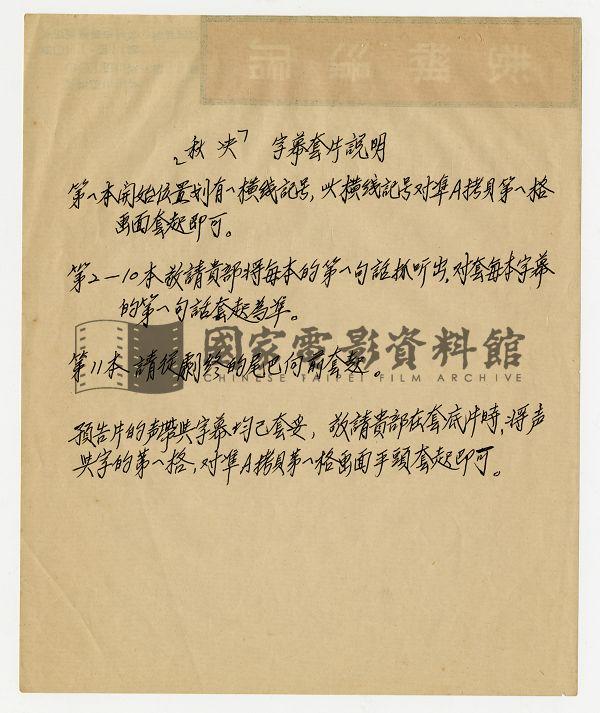 「秋决」 字幕套片説明
第一本開始位置划有一横线記号,以横线記号对準A拷貝第一格
画面套起即可。
第2-10本敬請貴部将每本的第一句話抓听出,对套每本字幕
的第一句話套起為準。
國家電影資料館
CHINESE TAIPEI FILM ARCHIVE
第11本 請從劇終的尾巴向前套起。
預告片的声帶與字幕均已套妥,敬請貴部在套底片時,将声
與字的第一格,对準A拷貝第一格画面平頭套起即可。